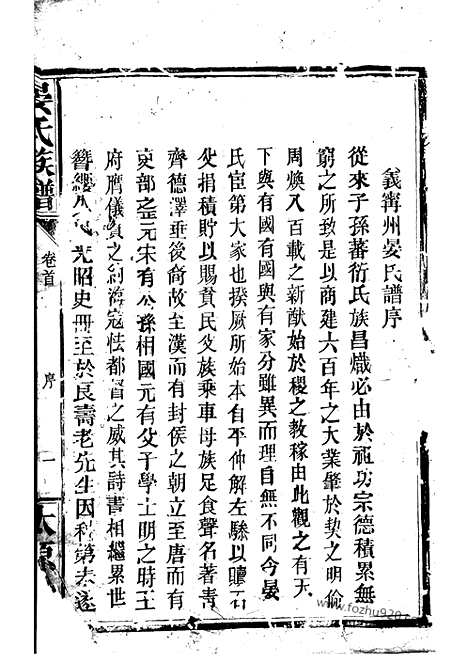 義甯州晏氏譜序
從來子孫蕃衍氏族昌熾必由於祖功宗德積累無
窮之所致是以商建六百年之大業肇於契之明倫
周煥八百載之新猷始於稷之教稼由此觀之有天
下與有國有國與有家分雖異而理自無不同今晏
氏宦第大家也揆厥所始本自平仲解左驂以贖石
父捐積貯以賜貧民父族乘車母族足食聲名著青
齊德澤垂後裔故至漢而有封侯之朝立至唐而有
吏部之 元宋有公孫相國元有父子學士明之時王
府膺儀賓之 海寇怯都督之威其詩書相繼累世
簪纓 光昭史冊至於良壽老先生因科第未遂
晏氏族譜
卷首
序
一
太原
www.fozhu920.com